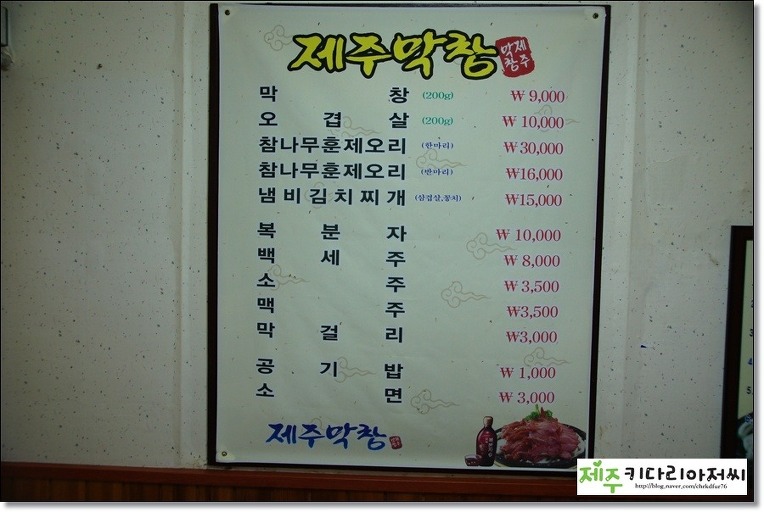 제주막창 제주막창
막창 (200g) ₩ 9,000
오겹살 (200g) ₩ 10,000
참나무훈제오리 (한마리) ₩ 30,000
참나무훈제오리 (반마리) ₩16,000
냄비김치찌개 (삼겹살,꽁치) ₩15,000
복분자 ₩ 10,000
백세주 ₩ 8,000
소주 ₩ 3,500
맥주 ₩3,500
막걸리 ₩3,000
공기밥 ₩ 1,000
소면 ₩ 3,000
제주막창
제주키다리아저씨
http://blog.naver.com/chrkdfur76